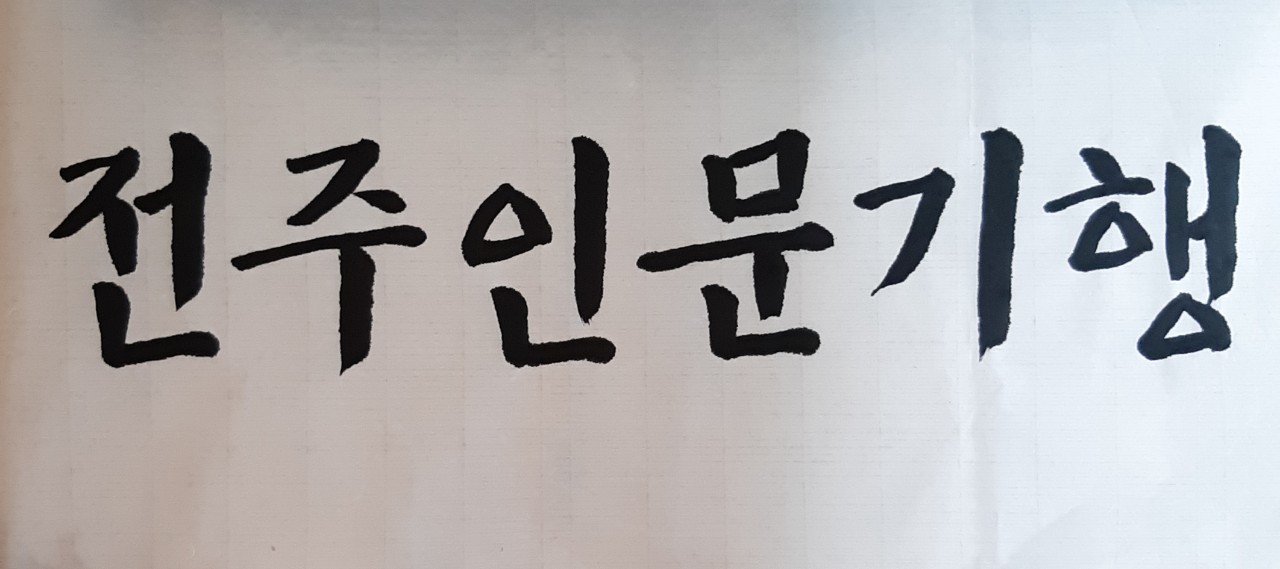 전주인문기행